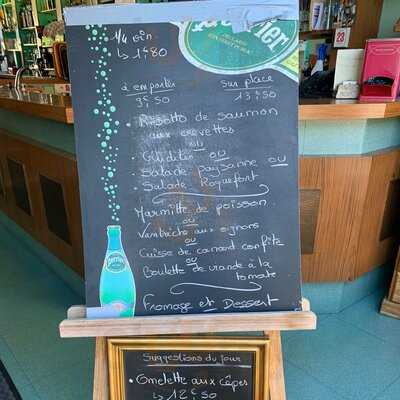 1/4 vin
↳ 1€80
Perrier
à emporter sur place
9€50 13€50
Risotto de saumon
aux crevettes
ou
ou
Salade paysanne ou
Salade Roquefort
Marmitte de poisson
ou
Ventrèche aux oignons
ou
Cuisse de canard confite
ou
Boulette de viande à la
tomate
Fromage et Dessert
perrier
Suggestions du Jour
Omelette aux cèpes
↳ 12€50
23